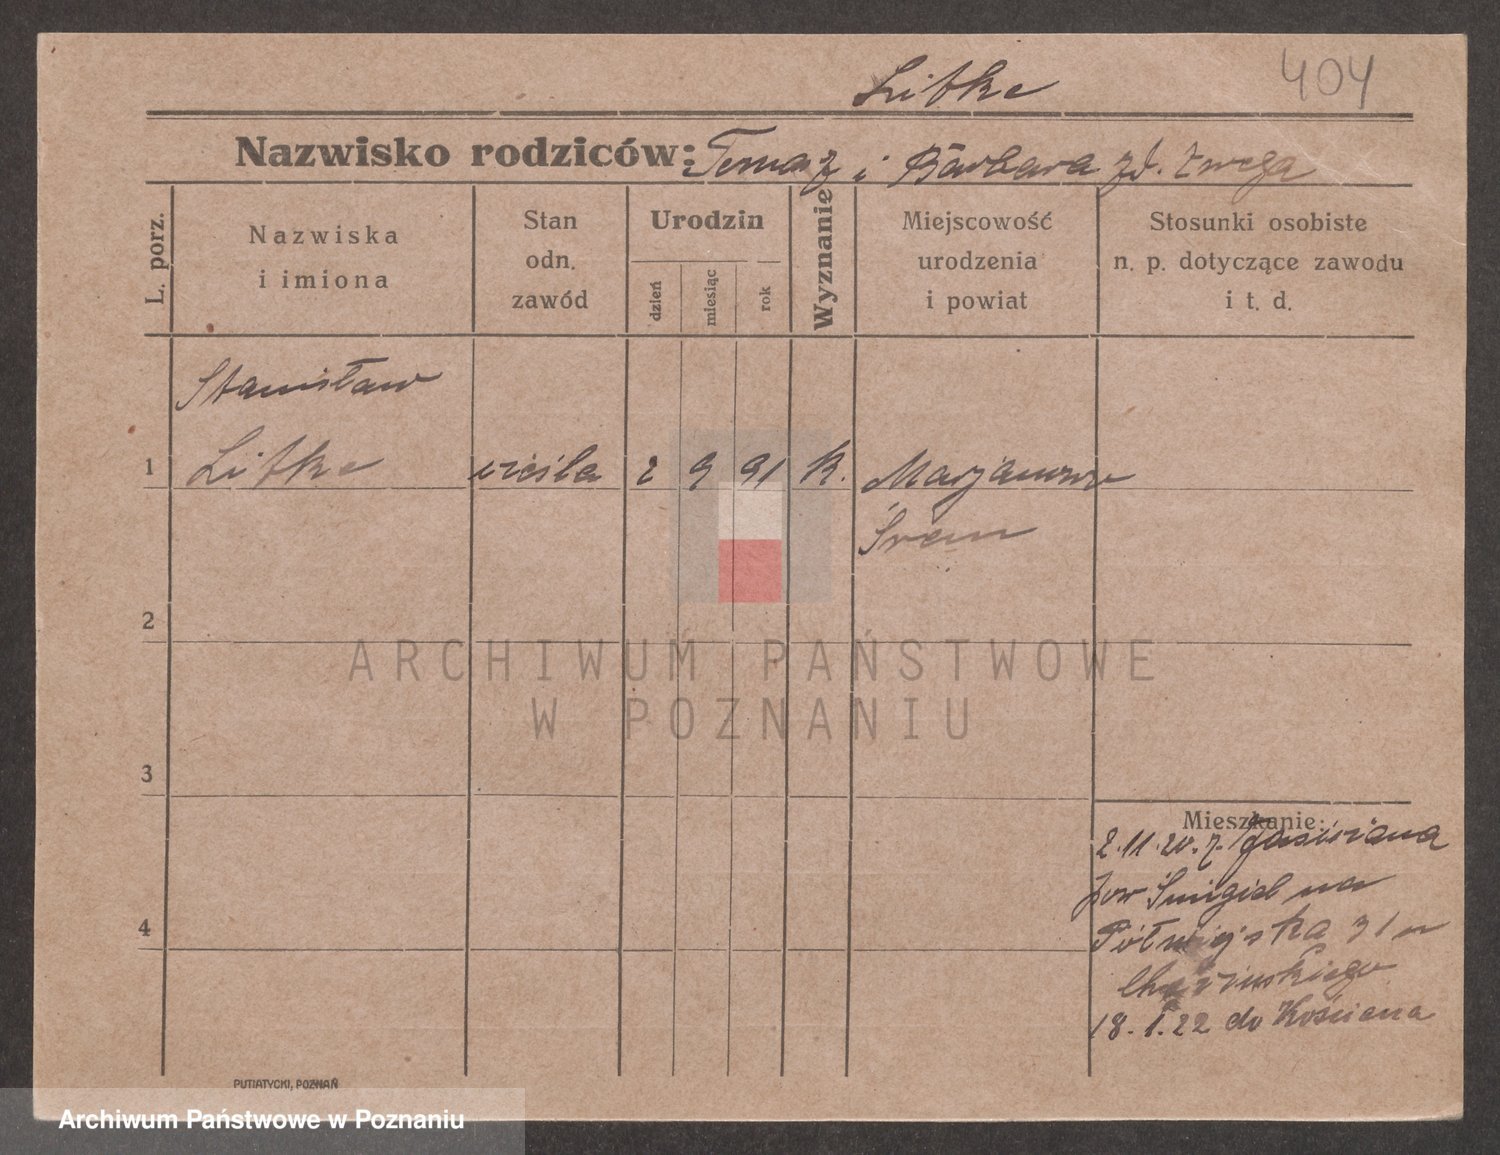 404
Litke
Nazwisko rodziców: Tomasz i Barbara zd.
L. porz.
Nazwiska
i imiona
Stan
odn.
zawód
Urodzin
dzień
miesiąc
rok
Wyznanie
Miejscowość
urodzenia
i powiat
Stosunki osobiste
n. p. dotyczące zawodu
i t. d.
Stanisław
1 Litke cieśla 2 9 91 k. Marjanowo
Śrem
2
3
4
Mieszkanie:
2.11.20. z
pow Śmigiel na
Półwiejską 31 u
18.1.22 do Kościana
PUTIATYCKI, POZNAŃ
ARCHIWUM PAŃSTWOWE
W POZNANIU
Archiwum Państwowe w Poznaniu